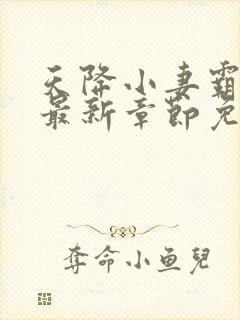 天降小妻霸
最新章節免
奪命小鱼兒